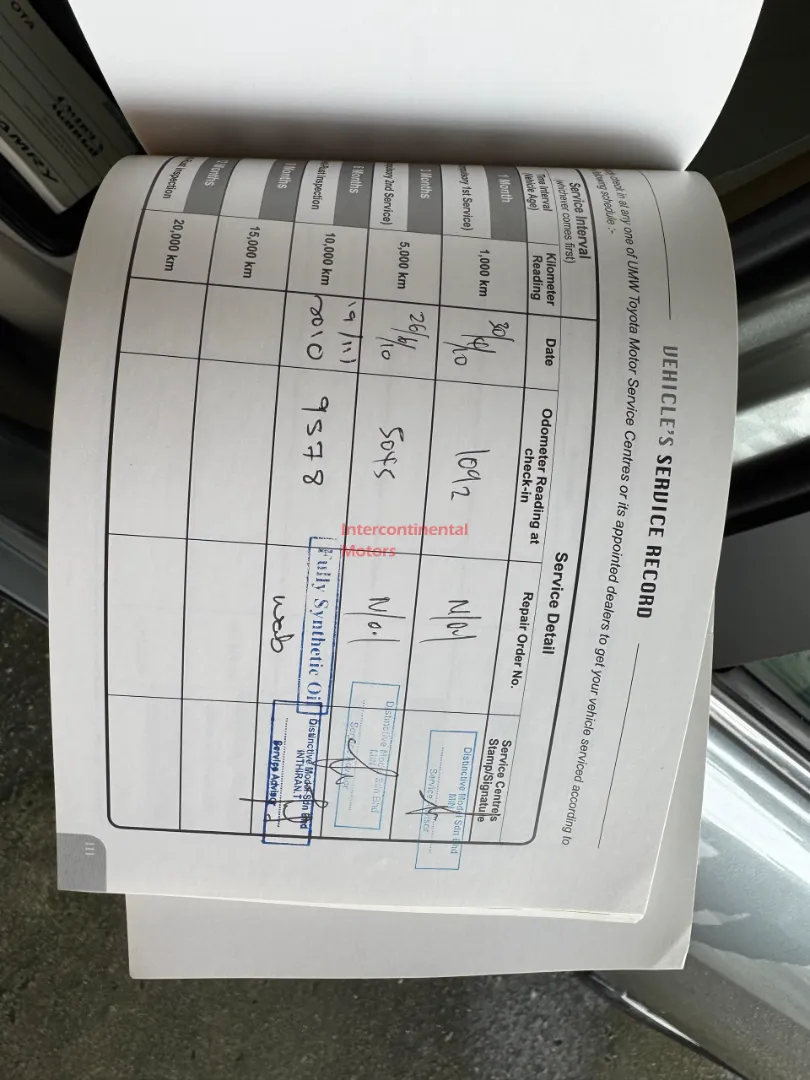 VEHICLE'S SERVICE RECORD
check in at any one of UMW Toyota Motor Service Centres or its appointed dealers to get your vehicle serviced according to
schedule :-
Service Interval
(whichever comes first)
Service Detail
Time Interval
(Vehicle Age)
Kilometer
Reading
Date
Odometer Reading at
check-in
Repair Order No.
Service Centre's
Stamp/Signature
1 Month
1st Service)
1,000 km
1092
Distinctive Model Sdn Bhd
Service Advisor
Months
2nd Service)
5,000 km
26/6/10
5045
Distinctive Model Sdn Bhd
Months
Inspection
10,000 km
2010
9578
Fully Synthetic Oil
Distinctive Model Sdn Bhd
INTHIRAN.T
Service Advisor
Months
15,000 km
Months
Inspection
20,000 km
111
Intercontinental
Motors
CAMRY